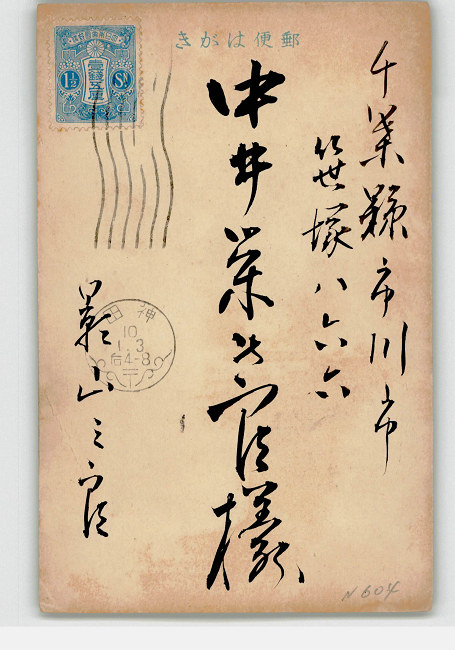 郵便はがき
大日本帝國郵便
壹錢五厘
1½ Sn
千葉縣市川市
笹塚八六六
中井榮郎様
神田
10
1.3
后4-8
山三郎
N604